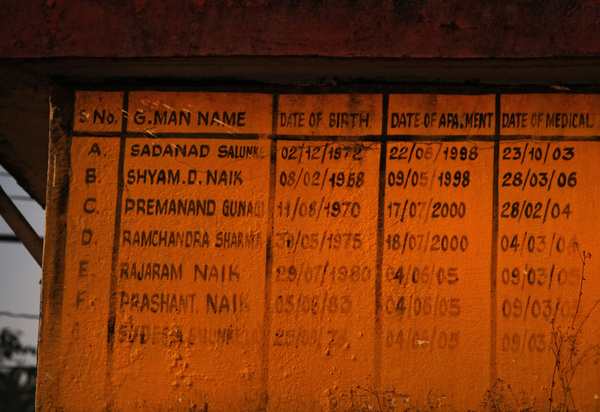 S No. G.MAN NAME DATE OF BIRTH DATE OF APA.MENT DATE OF MEDICAL
A. SADANAD SALUNKE 02/12/1972 22/06/1998 23/10/03
B. SHYAM.D. NAIK 08/02/1968 09/05/1998 28/03/06
C. PREMANAND GUNAGI 11/06/1970 17/07/2000 28/02/04
D. RAMCHANDRA SHARMA 18/07/2000 04/03/04
E. RAJARAM NAIK 29/07/1980 04/06/05 09/03/05
F. PRASHANT. NAIK 05/06/83 04/06/05 09/03/05
04/06/05 09/03